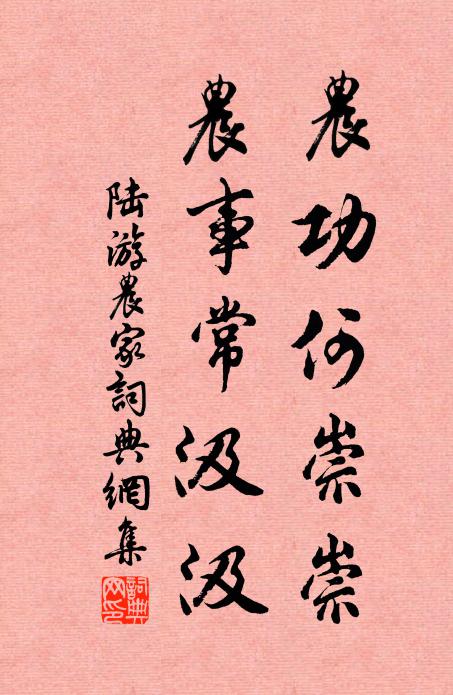 農功何崇崇
農事常汲汲
陸游農家詞典網集
詞典网印